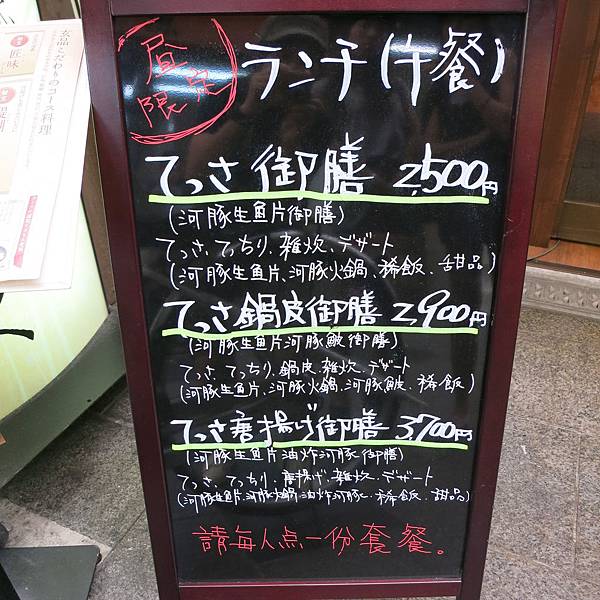 昼限定
ランチ(午餐)
てっさ御膳 2,500円
(河豚生魚片御膳)
てっさ、てっちり、雑炊、デザート
(河豚生魚片、河豚火鍋、稀飯、甜品)
てっさ鍋皮御膳 2,900円
(河豚生魚片河豚皮御膳)
てっさ、てっちり、鍋皮、雑炊、デザート
(河豚生魚片、河豚火鍋、河豚皮、稀飯)
てっさ唐揚げ御膳 3,700円
(河豚生魚片油炸河豚御膳)
てっさ、てっちり、唐揚げ、雑炊、デザート
(河豚生魚片、河豚火鍋、油炸河豚、稀飯、甜品)
請每人点一份套餐。
玄品こだわりのコース料理
匠味